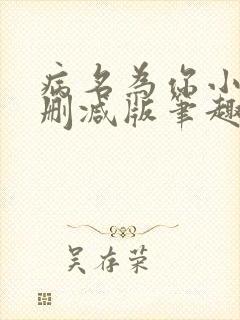 病名为你小
删减版笔趣
吴存荣